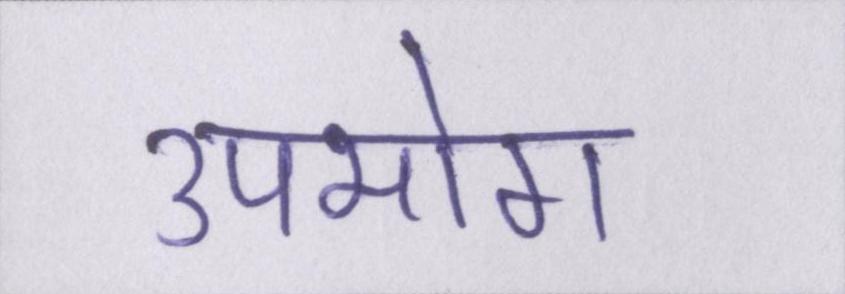 उपभोग